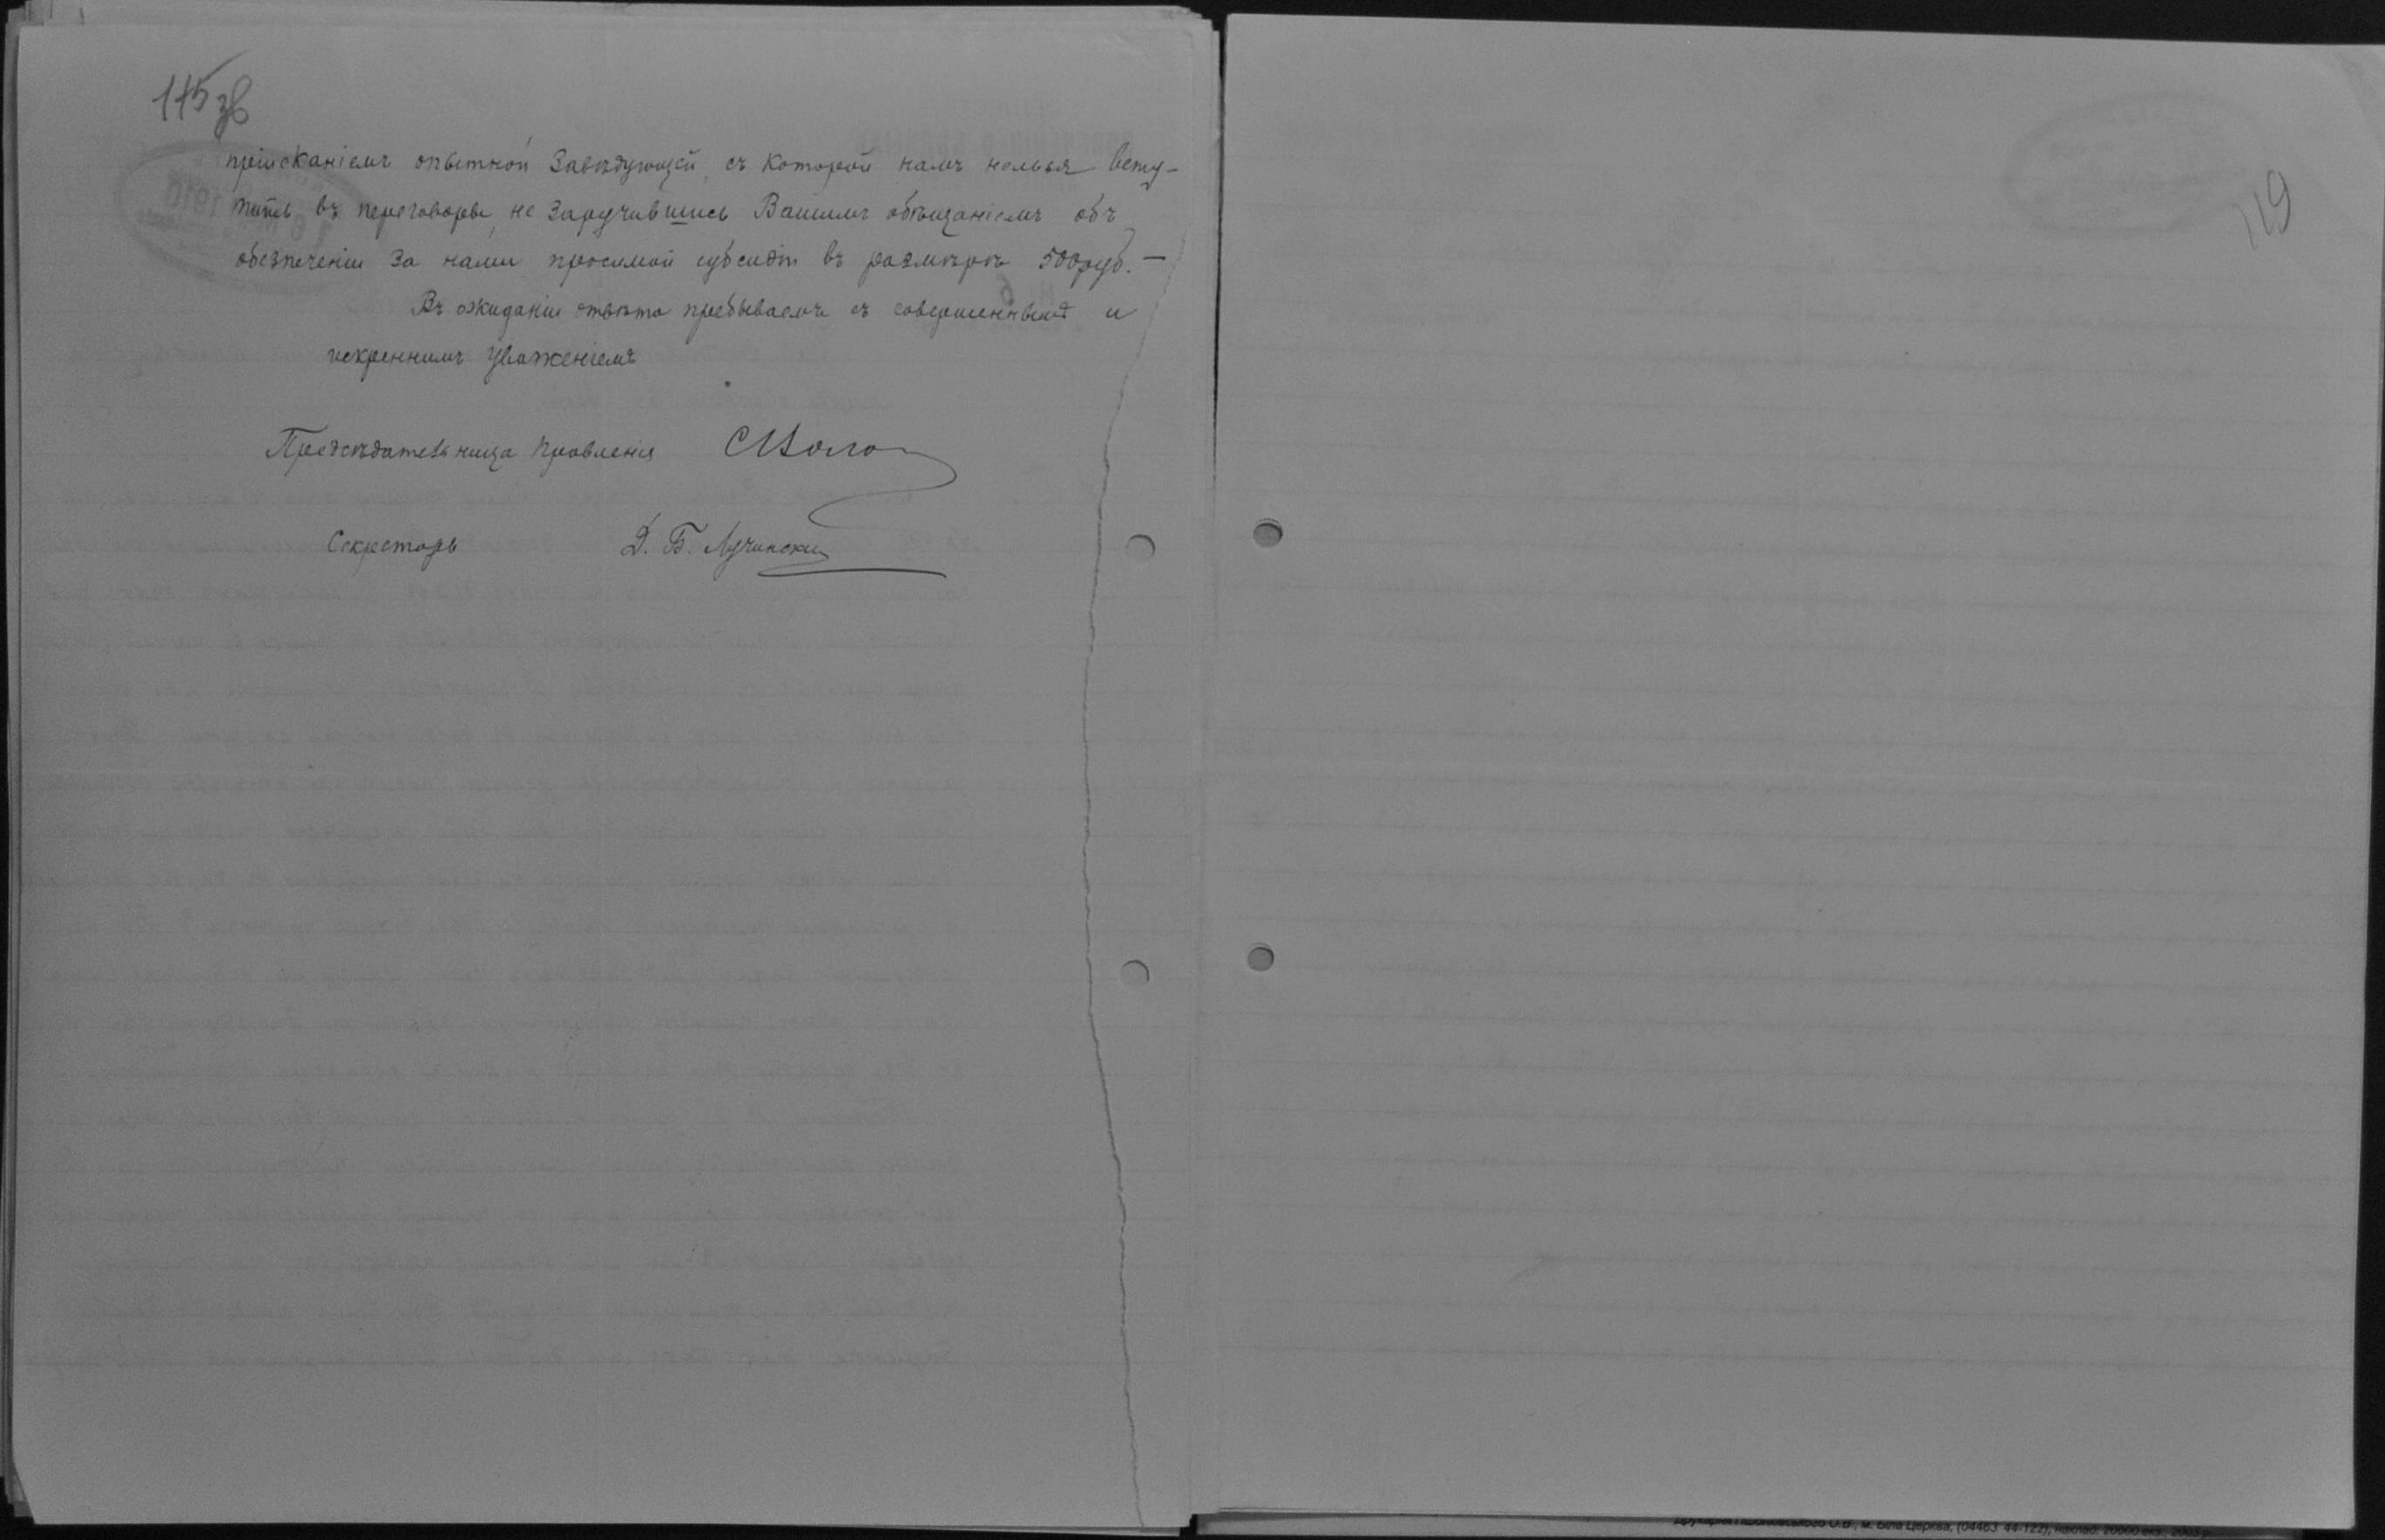 115 зв
пріисканіемъ опытной Завѣдующей, съ которой намъ нельзя всту-
пить въ переговоры, не Заручившись Вашимъ обѣщаніемъ объ
обезпеченіи За нами просимой субсидіи въ размѣрѣ 500 руб. —
Въ ожиданіи отвѣта пребываемъ съ совершеннымъ и
искреннимъ уваженіемъ
Предсѣдательница Правленія
Секретарь Д. Б. Лучинский
119
м. Біла Церква, (04463) 44-122), наклад: 20000